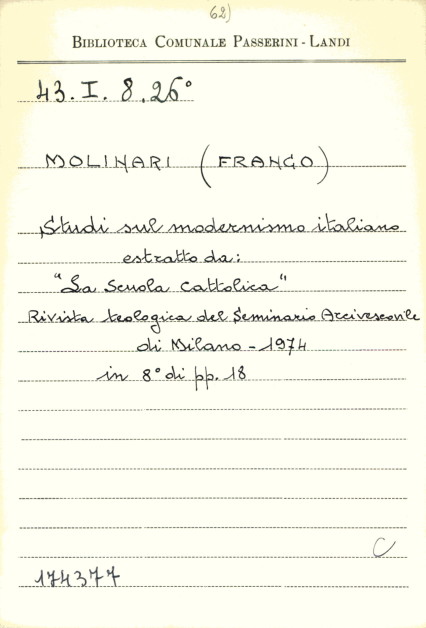 62)
BIBLIOTECA COMUNALE PASSERINI - LANDI
43. I. 8. 26°
MOLINARI (FRANCO)
Studi sul modernismo italiano
estratto da:
"La Scuola Cattolica"
Rivista teologica del Seminario Arcivescovile
di Milano - 1974
in 8° di pp. 18
C
174377